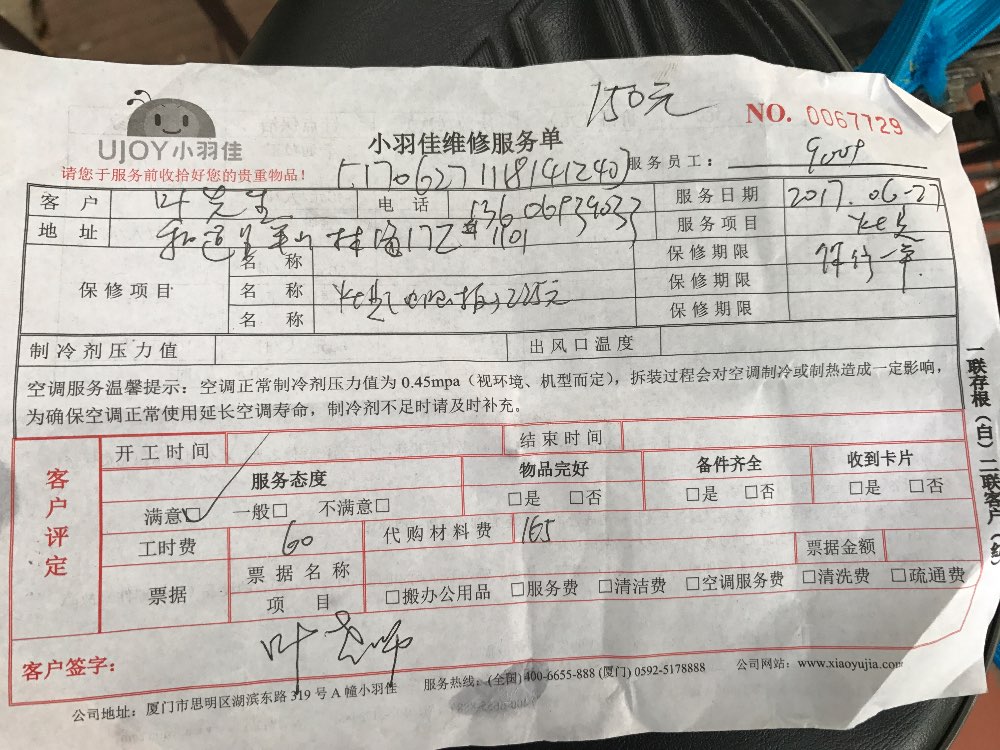 150元
NO. 0067729
UJOY小羽佳
小羽佳维修服务单
请您于服务前收拾好您的贵重物品！
服务员工：
客 户 叶先生 电 话 服务日期 2017.06-27
地 址 17 1101 服务项目
保修项目 名 称 保修期限 保修一年
名 称 电阻板 225元 保修期限
名 称 保修期限
制冷剂压力值 出风口温度
空调服务温馨提示：空调正常制冷剂压力值为 0.45mpa（视环境、机型而定），拆装过程会对空调制冷或制热造成一定影响，
为确保空调正常使用延长空调寿命，制冷剂不足时请及时补充。
客户评定
开工时间 结束时间
服务态度 物品完好 备件齐全 收到卡片
满意□ 一般□ 不满意□ □是 □否 □是 □否 □是 □否
工时费 60 代购材料费 165 票据金额
票据 票据名称
项 目 □搬办公用品 □服务费 □清洁费 □空调服务费 □清洗费 □疏通费
客户签字： 叶老师
公司地址：厦门市思明区湖滨东路 319 号 A 幢小羽佳 服务热线：(全国) 400-6655-888 (厦门) 0592-5178888 公司网站：www.xiaoyujia.com
一联存根（白）二联客户（红